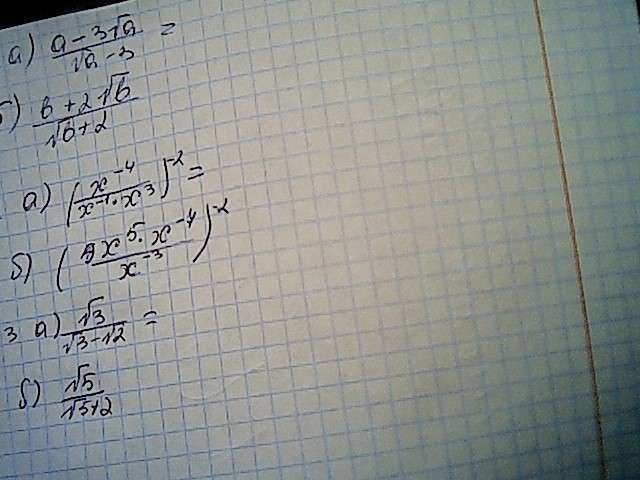 а) (a - 3√a)/(√a - 3) =
б) (b + 2√b)/(√b + 2)
а) (x⁻⁴/(x⁻¹ · x³))⁻² =
б) (x⁵ · x⁻⁴/x⁻³)⁻²
3 а) √3/(√3 - √2) =
б) √5/(√3+2)